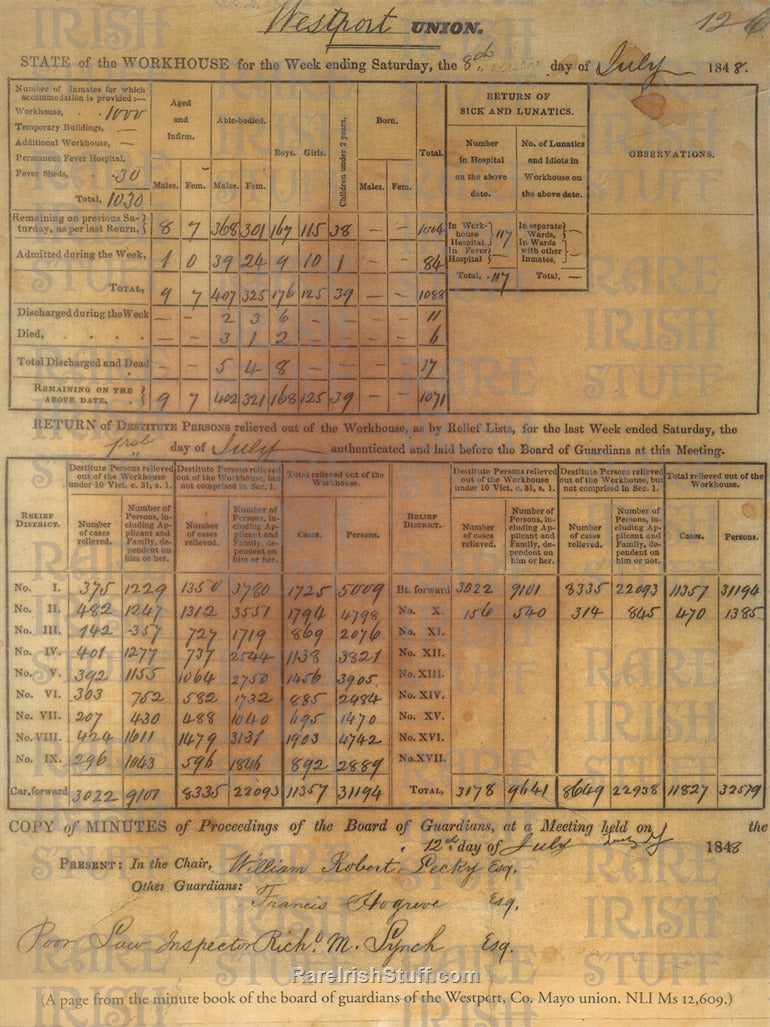 Westport UNION.
STATE of the WORKHOUSE for the Week ending Saturday, the 8th day of July 1848.
Number of Inmates for which accommodation is provided:—
Workhouse, 1000
Temporary Buildings, —
Additional Workhouse, —
Permanent Fever Hospital,
Fever Sheds, 30
Total, 1030
Aged and Infirm. Able-bodied. Boys. Girls. Children under 2 years. Born. Total.
Males. Fem. Males. Fem. Males. Fem.
RETURN OF SICK AND LUNATICS.
Number in Hospital on the above date. No. of Lunatics and Idiots in Workhouse on the above date.
OBSERVATIONS.
Remaining on previous Saturday, as per last Return, 8 7 368 301 167 115 38 — — 1004
Admitted during the Week, 1 0 39 24 9 10 1 — — 84
TOTAL, 9 7 407 325 176 125 39 — — 1088
Discharged during the Week — — 2 3 6 — — — — 11
Died, — — 3 1 2 — — — — 6
Total Discharged and Dead — — 5 4 8 — — — — 17
REMAINING ON THE ABOVE DATE. 9 7 402 321 168 125 39 — — 1071
In Workhouse Hospital, 117 In separate Wards, —
In Fever Hospital — In Wards with other Inmates, —
Total, 117 Total, —
RETURN of DESTITUTE PERSONS relieved out of the Workhouse, as by Relief Lists, for the last Week ended Saturday, the
first day of July authenticated and laid before the Board of Guardians at this Meeting.
RELIEF DISTRICT.
Destitute Persons relieved out of the Workhouse under 10 Vict. c. 31, s. 1.
Destitute Persons relieved out of the Workhouse, but not comprised in Sec. 1.
Total relieved out of the Workhouse.
Number of cases relieved. Number of Persons, including Applicant and Family, dependent on him or her. Number of cases relieved. Number of Persons, including Applicant and Family, dependent on him or her. Cases. Persons.
No. I. 375 1229 1350 3780 1725 5009
No. II. 482 1247 1312 3551 1794 4798
No. III. 142 357 727 1719 869 2076
No. IV. 401 1277 737 2544 1138 3821
No. V. 392 1155 1064 2750 1456 3905
No. VI. 303 752 582 1732 885 2484
No. VII. 207 430 488 1040 695 1470
No. VIII. 424 1611 1479 3131 1903 4742
No. IX. 296 1043 596 1846 892 2889
Car. forward 3022 9101 8335 22093 11357 31194
RELIEF DISTRICT.
Destitute Persons relieved out of the Workhouse under 10 Vict. c. 31, s. 1.
Destitute Persons relieved out of the Workhouse, but not comprised in Sec. 1.
Total relieved out of the Workhouse.
Number of cases relieved. Number of Persons, including Applicant and Family, dependent on him or her. Number of cases relieved. Number of Persons, including Applicant and Family, dependent on him or not. Cases. Persons.
Bt. forward 3022 9101 8335 22093 11357 31194
No. X. 156 540 314 845 470 1385
No. XI.
No. XII.
No. XIII.
No. XIV.
No. XV.
No. XVI.
No. XVII.
TOTAL, 3178 9641 8649 22938 11827 32579
COPY of MINUTES of Proceedings of the Board of Guardians, at a Meeting held on the
12th day of July 1848
PRESENT: In the Chair, William Robert Pecky Esq.
Other Guardians:
Francis Hogreve Esq.
Poor Law Inspector Richd. M. Lynch Esq.
RareIrishStuff.com
(A page from the minute book of the board of guardians of the Westport, Co. Mayo union. NLI Ms 12,609.)